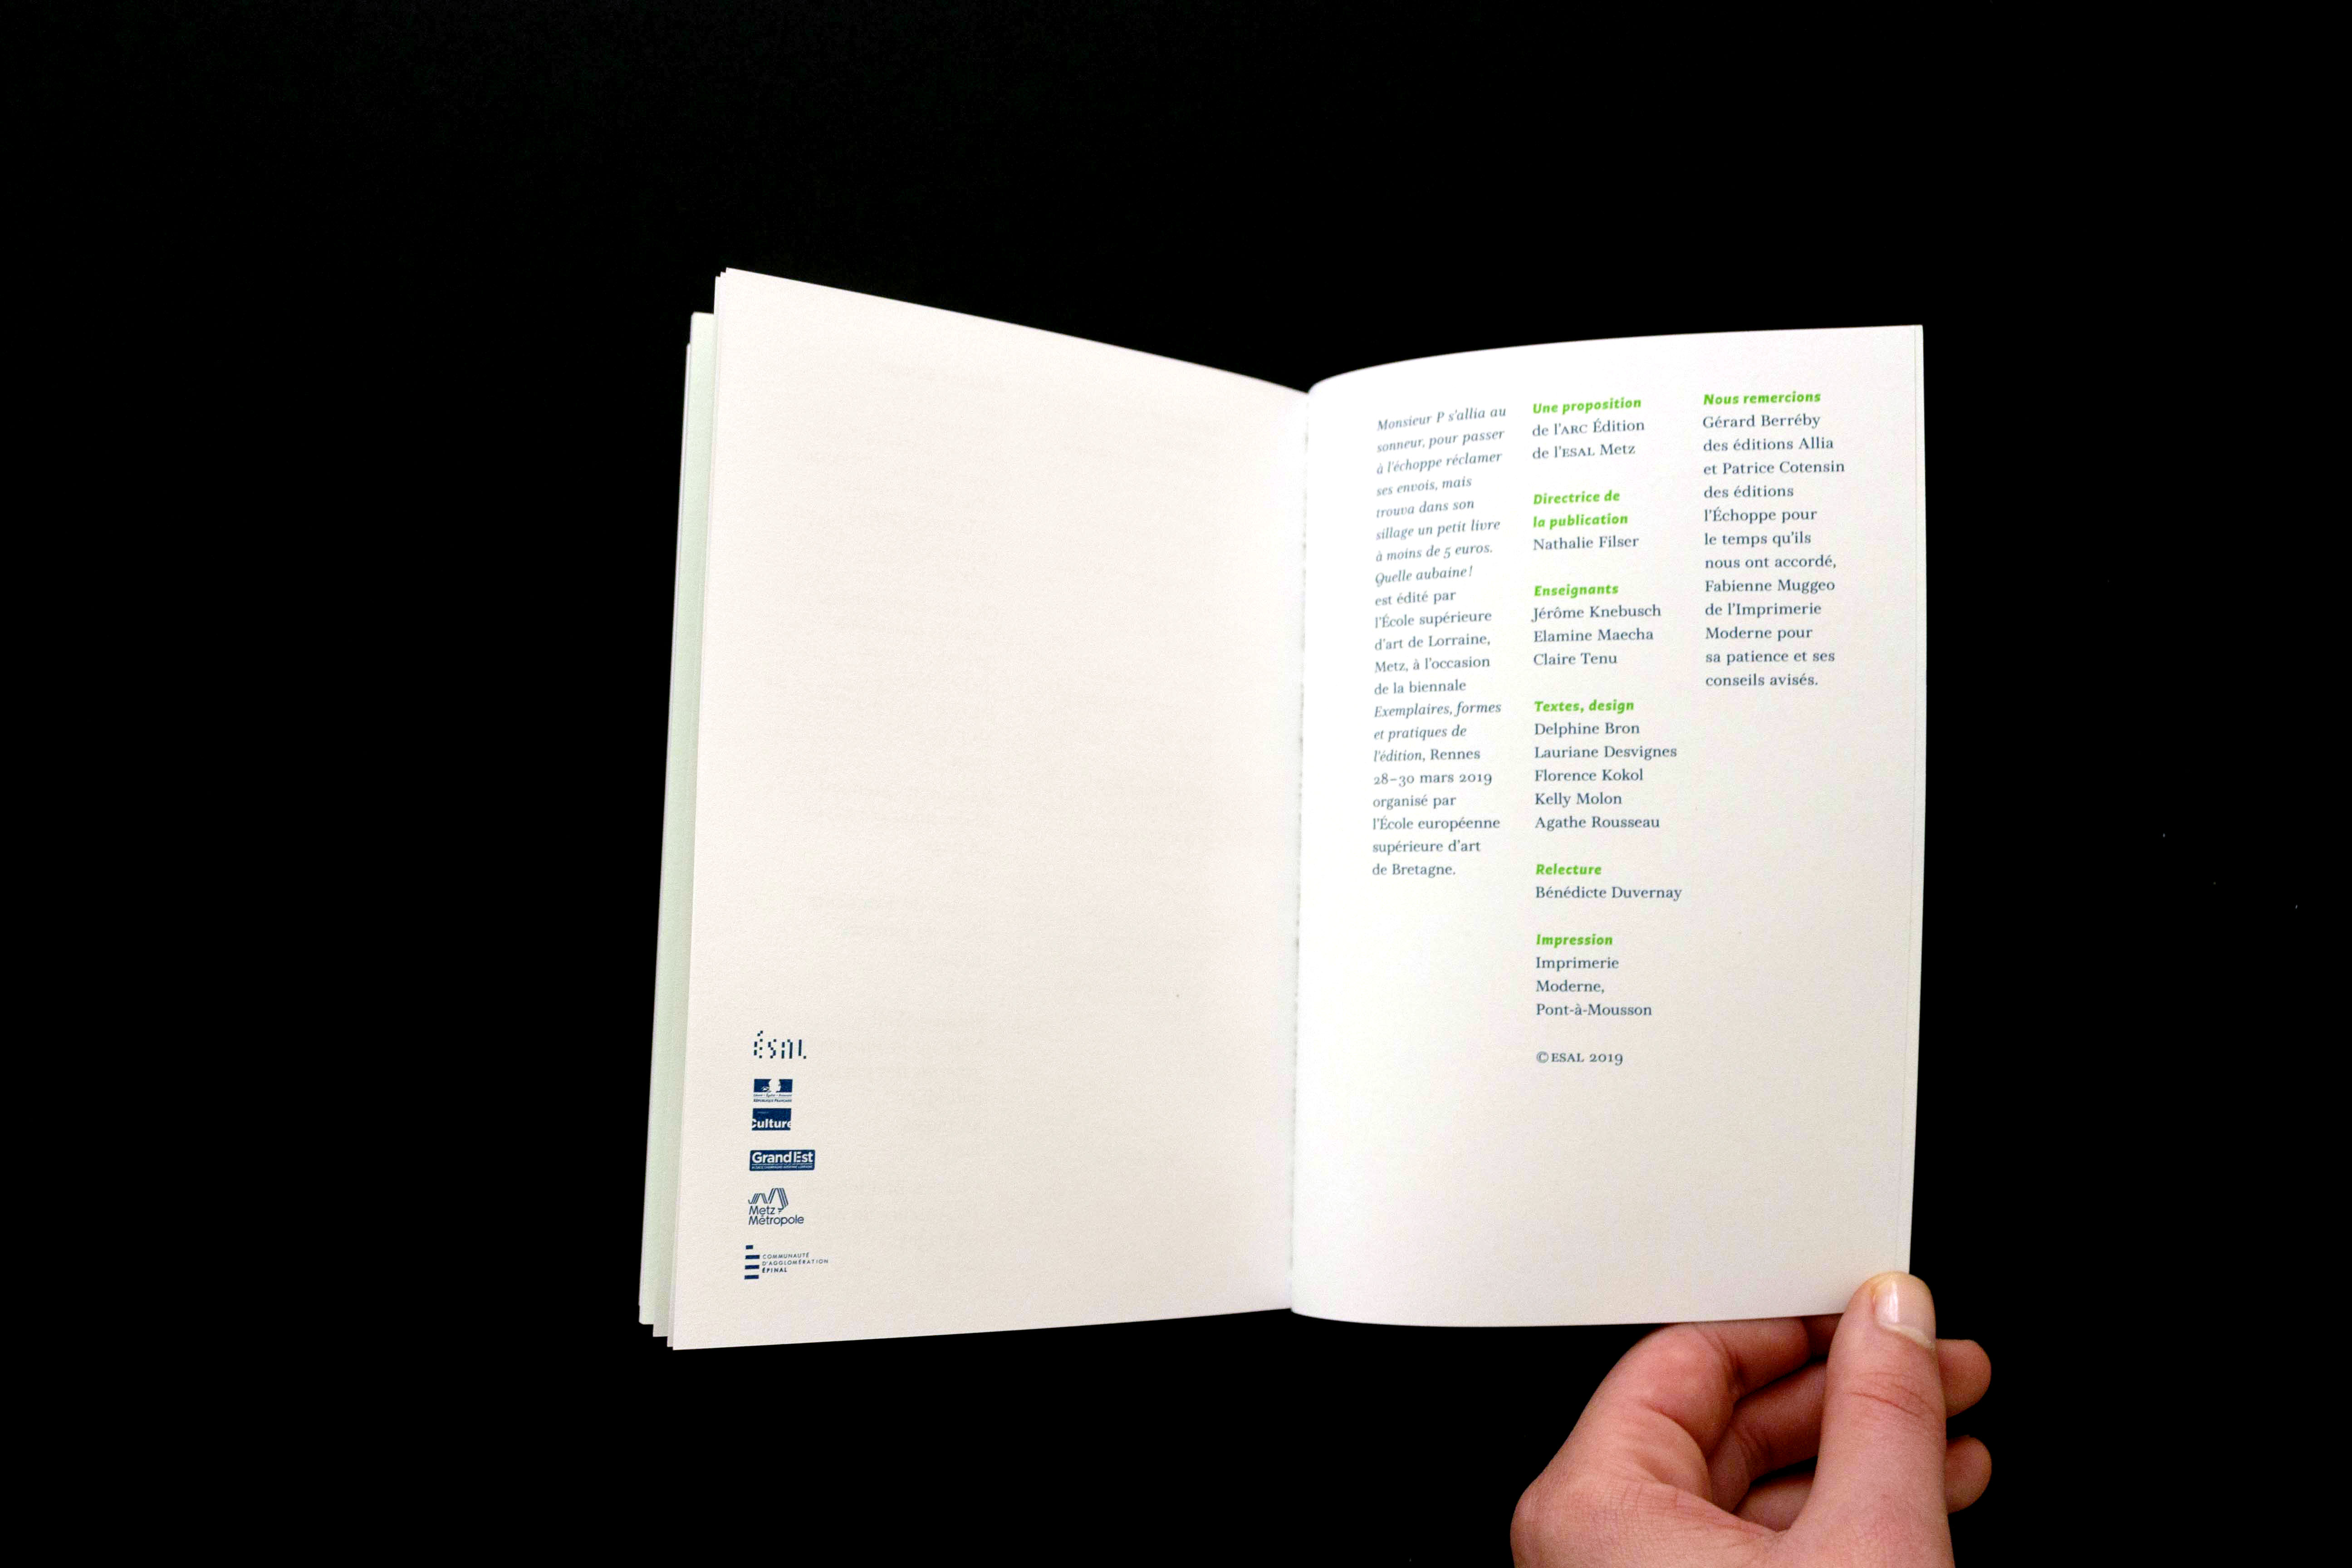 ésal
RÉPUBLIQUE FRANÇAISE
Culture
GrandEst
Metz
Métropole
COMMUNAUTÉ
D'AGGLOMÉRATION
ÉPINAL
Monsieur P s'allia au
sonneur, pour passer
à l'échoppe réclamer
ses envois, mais
trouva dans son
sillage un petit livre
à moins de 5 euros.
Quelle aubaine !
est édité par
l'École supérieure
d'art de Lorraine,
Metz, à l'occasion
de la biennale
Exemplaires, formes
et pratiques de
l'édition, Rennes
28–30 mars 2019
organisé par
l'École européenne
supérieure d'art
de Bretagne.
Une proposition
de l'ARC Édition
de l'ESAL Metz
Directrice de
la publication
Nathalie Filser
Enseignants
Jérôme Knebusch
Elamine Maecha
Claire Tenu
Textes, design
Delphine Bron
Lauriane Desvignes
Florence Kokol
Kelly Molon
Agathe Rousseau
Relecture
Bénédicte Duvernay
Impression
Imprimerie
Moderne,
Pont-à-Mousson
©ESAL 2019
Nous remercions
Gérard Berréby
des éditions Allia
et Patrice Cotensin
des éditions
l'Échoppe pour
le temps qu'ils
nous ont accordé,
Fabienne Muggeo
de l'Imprimerie
Moderne pour
sa patience et ses
conseils avisés.